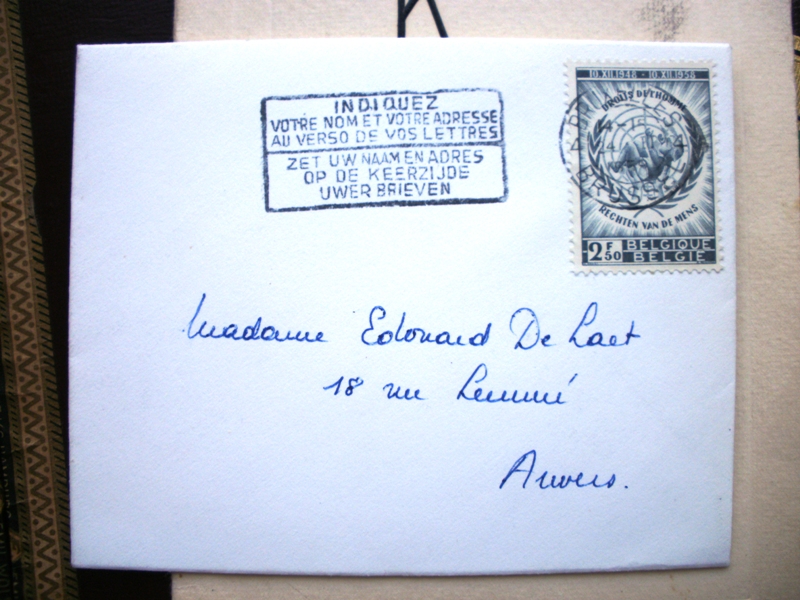 INDIQUEZ
VOTRE NOM ET VOTRE ADRESSE
AU VERSO DE VOS LETTRES
ZET UW NAAM EN ADRES
OP DE KEERZIJDE
UWER BRIEVEN
10.XII.1948 - 10.XII.1958
DROITS DE L'HOMME
RECHTEN VAN DE MENS
2 F 50
BELGIQUE
BELGIË
BRUXELLES
BRUSSEL
Madame Edouard De Laet
18 rue Lemmé
Anvers.